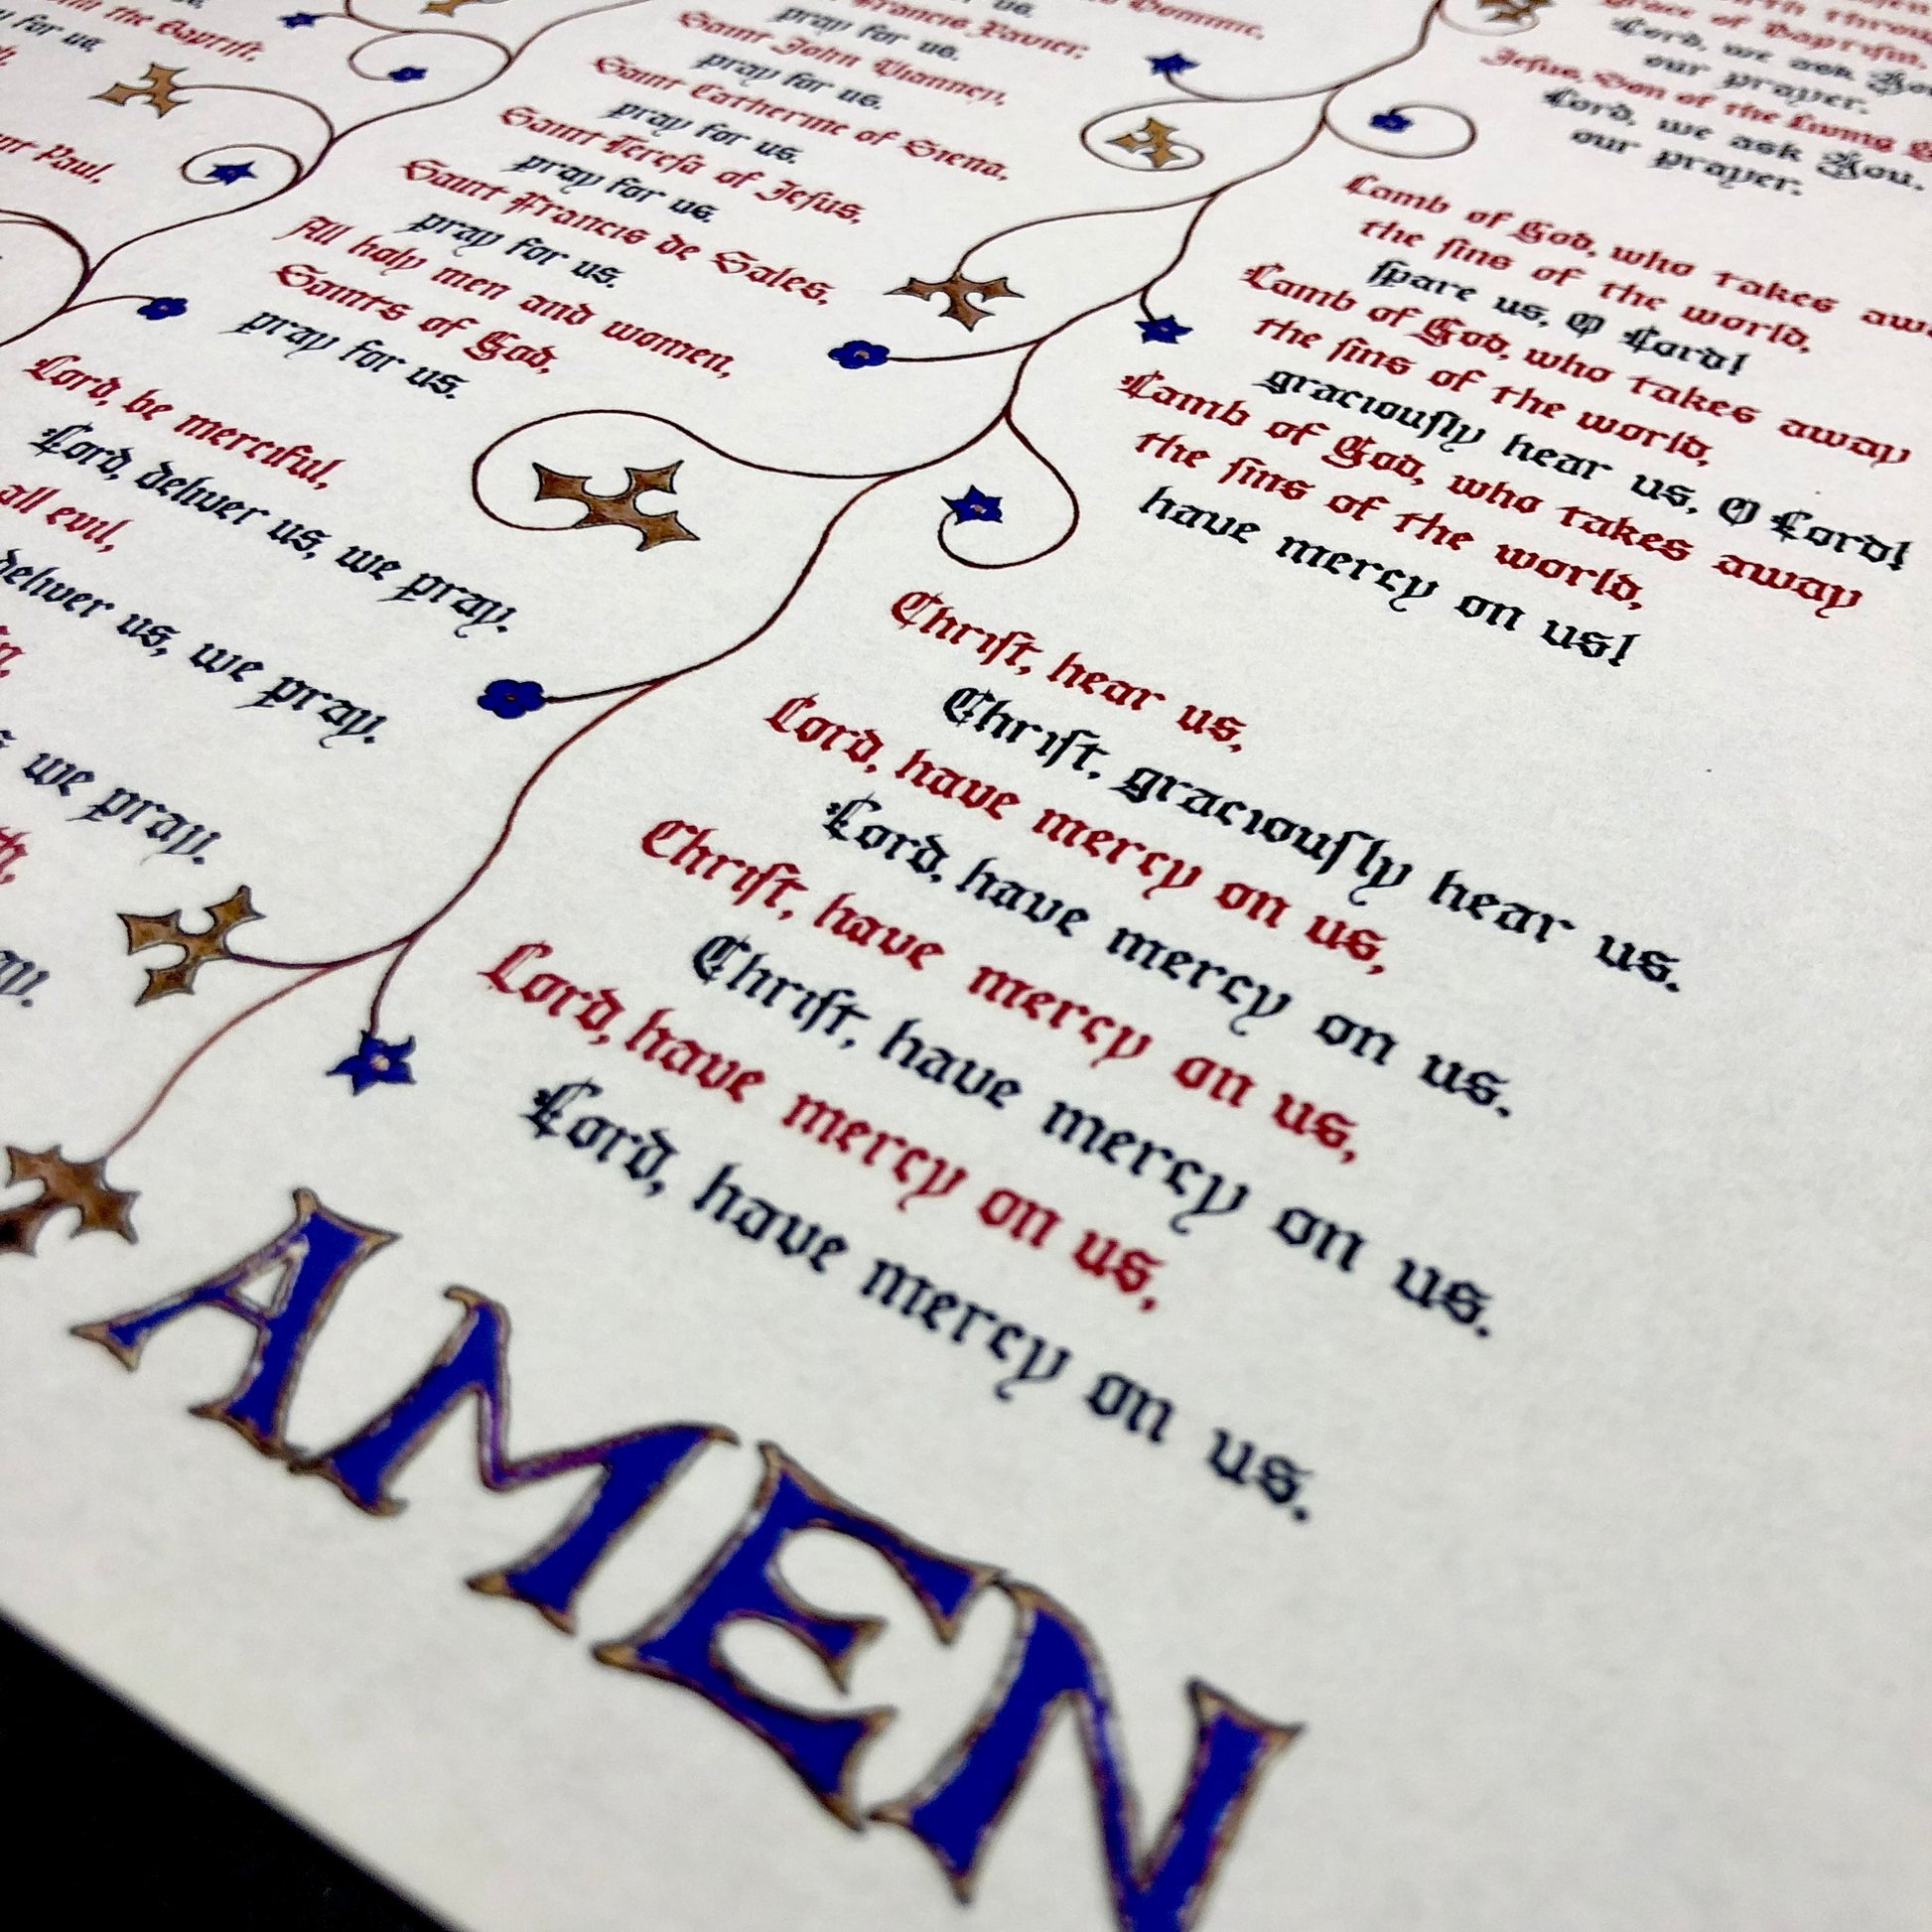 n the Baptist,
for us.
nt Paul,
Lord, be merciful,
Lord, deliver us, we pray.
all evil,
deliver us, we pray.
we pray.
Dominic,
us.
Francis Xavier,
pray for us.
Saint John Vianney,
pray for us.
Saint Catherine of Siena,
pray for us.
Saint Teresa of Jesus,
pray for us.
Saint Francis de Sales,
pray for us.
All holy men and women,
Saints of God,
pray for us.
Grace of Baptism,
Lord, we ask You,
our prayer.
Jesus, Son of the Living
Lord, we ask You,
our prayer.
Lamb of God, who takes aw
the sins of the world,
spare us, O Lord!
Lamb of God, who takes away
the sins of the world,
graciously hear us, O Lord!
Lamb of God, who takes away
the sins of the world,
have mercy on us!
Christ, hear us,
Christ, graciously hear us.
Lord, have mercy on us,
Lord, have mercy on us.
Christ, have mercy on us,
Christ, have mercy on us.
Lord, have mercy on us,
Lord, have mercy on us.
AMEN